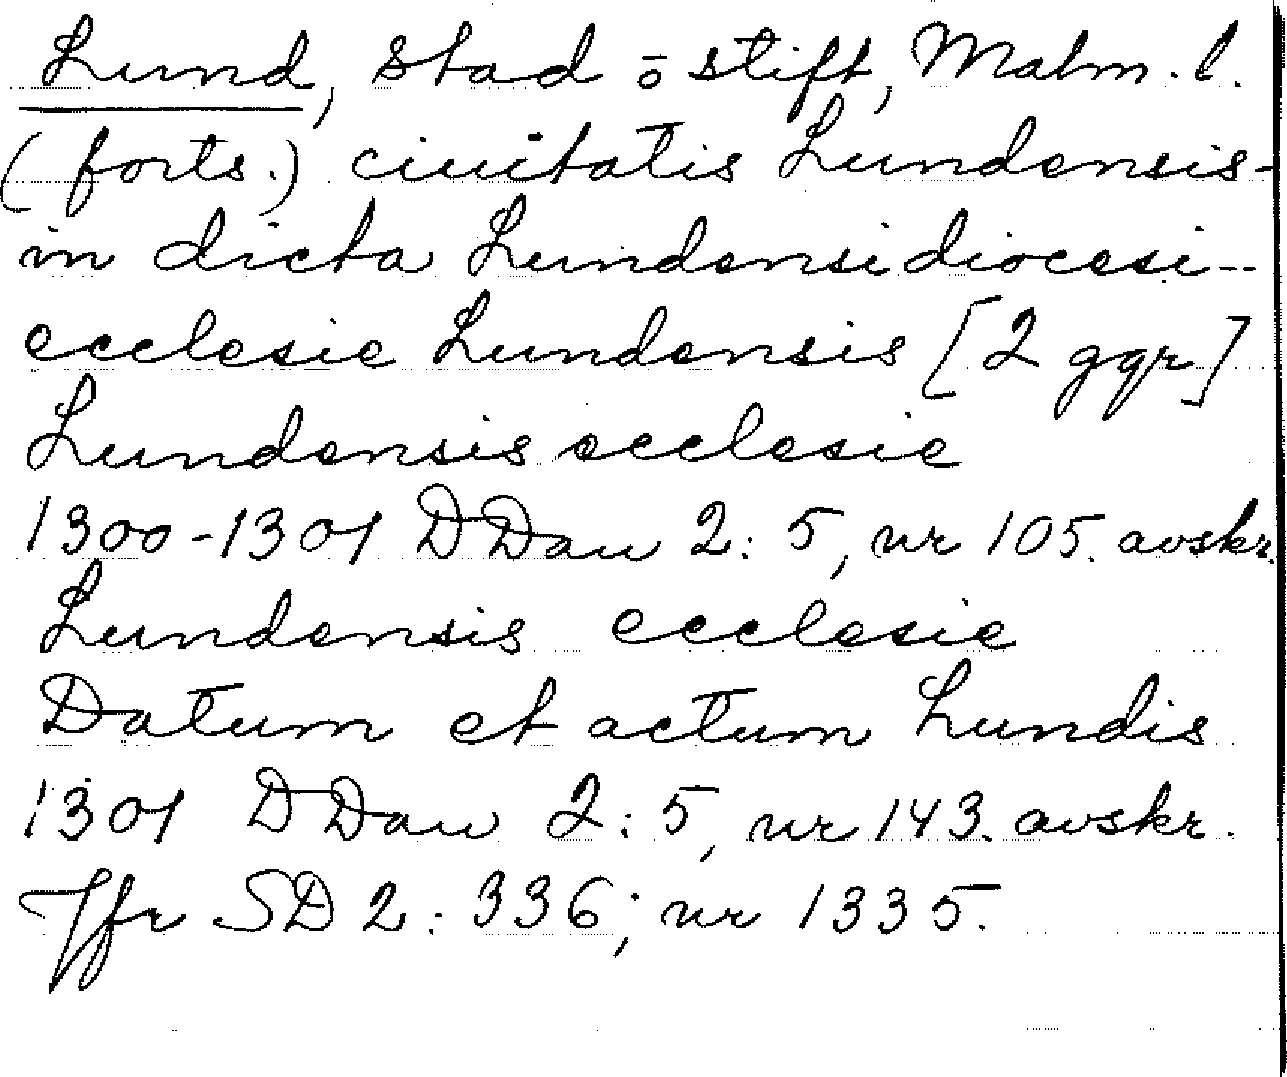 Lund, stad o stift, Malm. l.
(forts.) ciuitatis Lundensis-
in dicta Lundensi diocesi--
ecclesie Lundensis [2 ggr]
Lundensis ecclesie
1300-1301 DDan 2: 5, nr 105. avskr.
Lundensis ecclesie
Datum et actum Lundis
1301 DDan 2: 5, nr 143. avskr.
Jfr SD 2: 336; nr 1335.